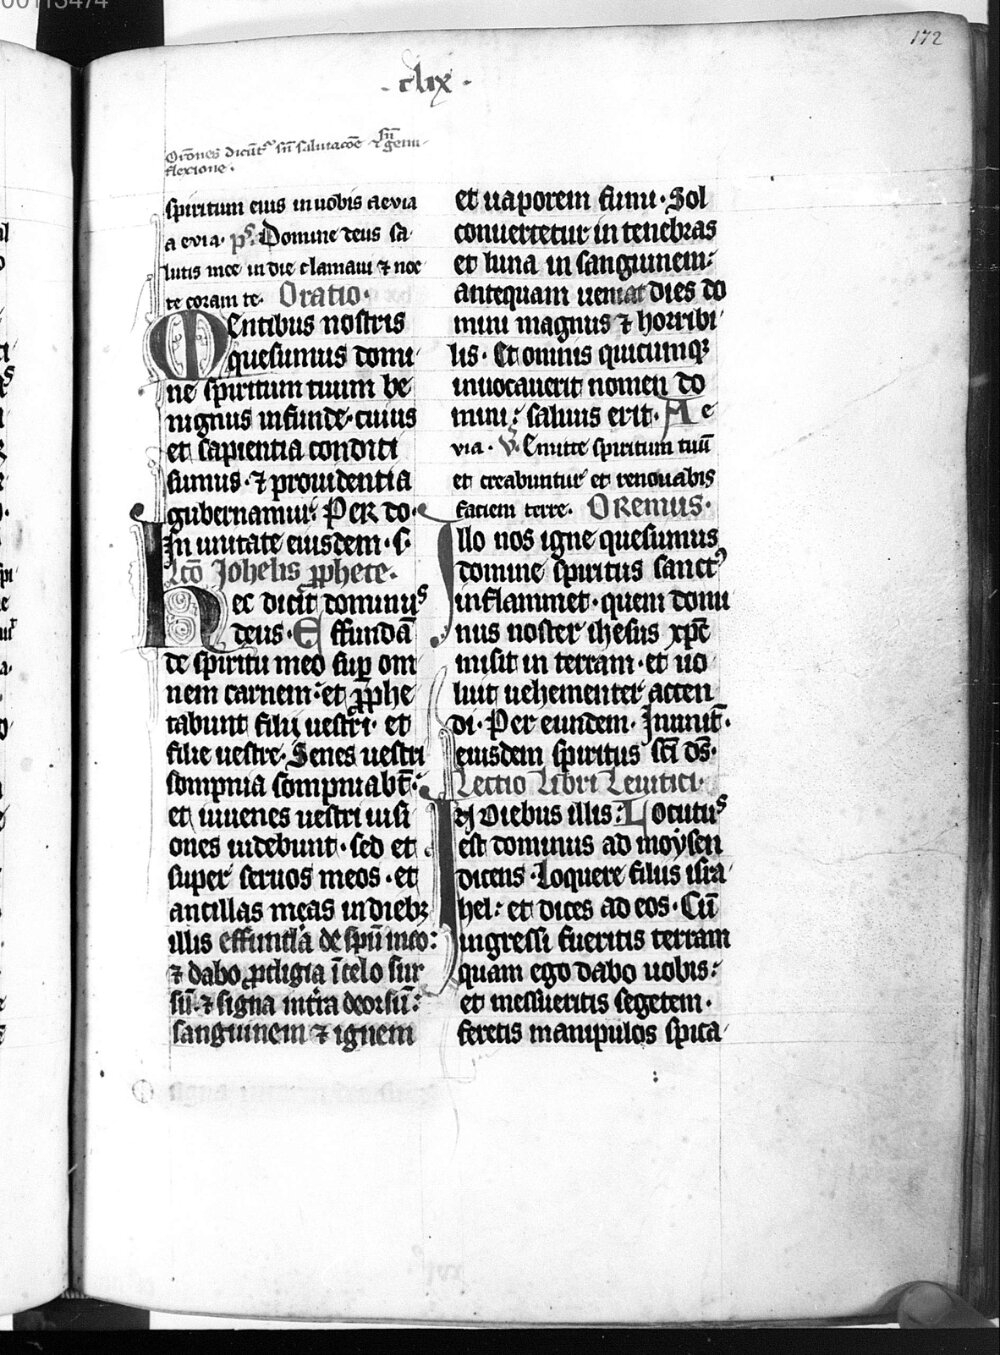 00113474
172
· clix ·
Orōnes dicūt᷑ sn̄ salutacōe ⁊ sn̄ genu
flexione ·
spiritum eius in uobis aevia
a evia · ps̄. Domine deus sa
lutis mee in die clamaui ⁊ noc
te coram te · Oratio ·
Mentibus nostris
quesumus domi
ne spiritum tuum be
nignus infunde · cuius
et sapientia conditi
sumus · ⁊ prouidentia
gubernamur · Per do ·
In unitate eiusdem · s ·
Lcō Johelis ꝓphete ·
Hec dicit dominus
deus · Effundā
de spiritu meo suꝑ om
nem carnem : et ꝓphe
tabunt filij uestri · et
filie uestre · Senes uestri
sompnia sompniabt̄ :
et iuuenes uestri uisi
ones uidebunt · sed et
super seruos meos · et
ancillas meas in diebꝫ
illis effundā de spū meo :
⁊ dabo ꝓdigia ī celo sur
sū · ⁊ signa in tr̄a deorsū :
sanguinem ⁊ ignem
et uaporem fumi · Sol
conuertetur in tenebras
et luna in sanguinem :
antequam ueniat dies do
mini magnus ⁊ horribi
lis · Et omnis quicumqꝫ
inuocauerit nomen do
mini : saluus erit · Ae
via · V̄. Emitte spiritum tuū
et creabuntur et renouabis
faciem terre · Oremus ·
Illo nos igne quesumus
domine spiritus sanctꝰ
inflammet · quem domi
nus noster ihesus xp̄c
misit in terram · et uo
luit uehementer accen
di · Per eundem · In unit̄ ·
eiusdem spiritus sc̄i ds̄ ·
Lectio Libri Leuitici ·
In diebus illis : Locutus
est dominus ad moysen
dicens · Loquere filiis isra
hel : et dices ad eos · Cū
ingressi fueritis terram
quam ego dabo uobis :
et messueritis segetem ·
feretis manipulos spica